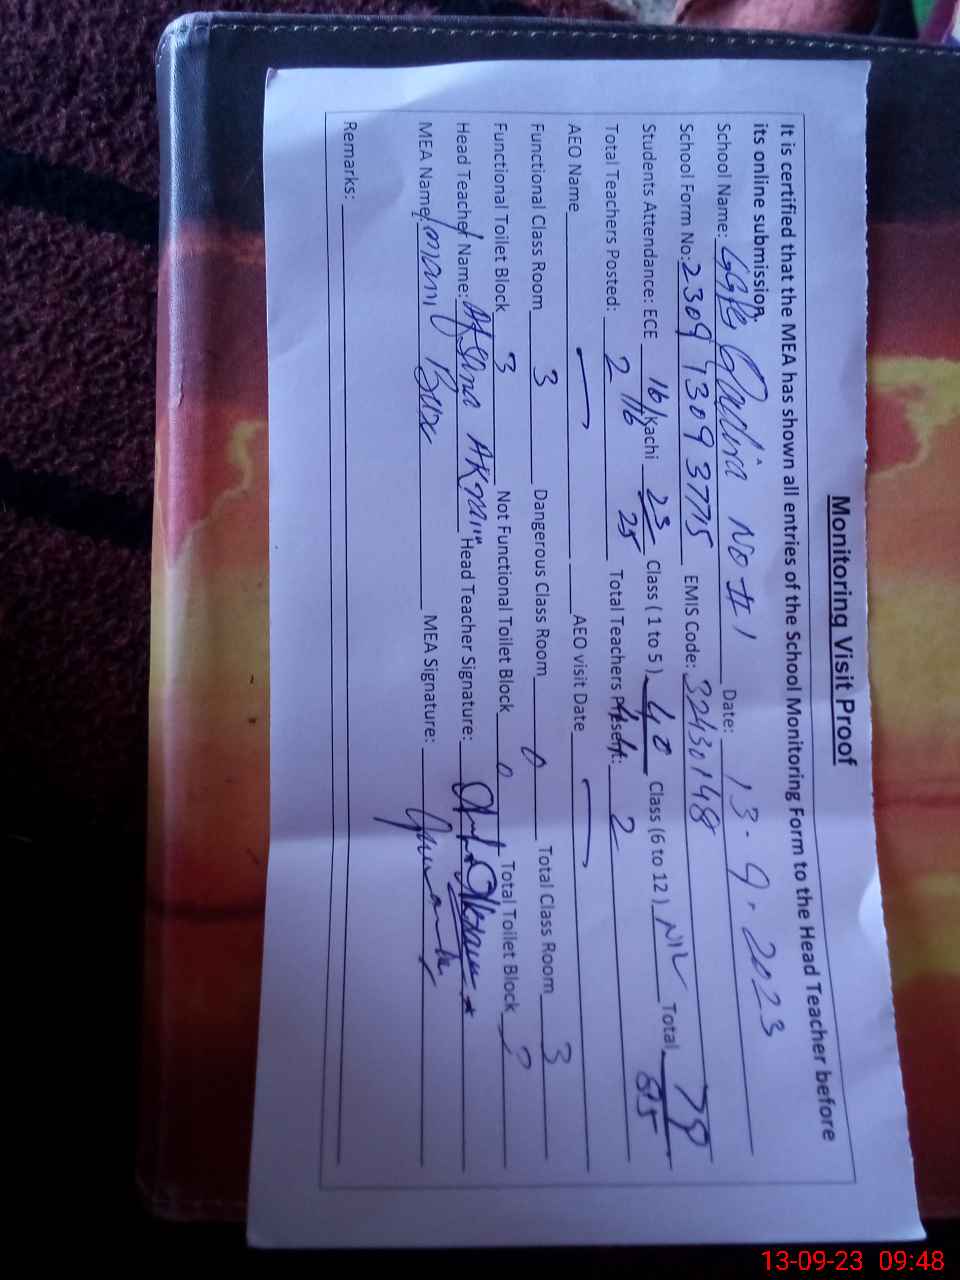 Monitoring Visit Proof
It is certified that the MEA has shown all entries of the School Monitoring Form to the Head Teacher before
its online submission.
School Name: GGPS No # 1 Date: 13-9-2023
School Form No: 2309130937715 EMIS Code: 32430148
Students Attendance: ECE 16 Kachi 23 Class (1 to 5) 40 Class (6 to 12) NIL Total 78
16 25 44 85
Total Teachers Posted: 2 Total Teachers Present: 2
AEO Name — AEO visit Date —
Functional Class Room 3 Dangerous Class Room 0 Total Class Room 3
Functional Toilet Block 3 Not Functional Toilet Block 0 Total Toilet Block
Head Teacher Name: Akram Head Teacher Signature:
MEA Name: Imam Bux MEA Signature:
Remarks:
13-09-23 09:48